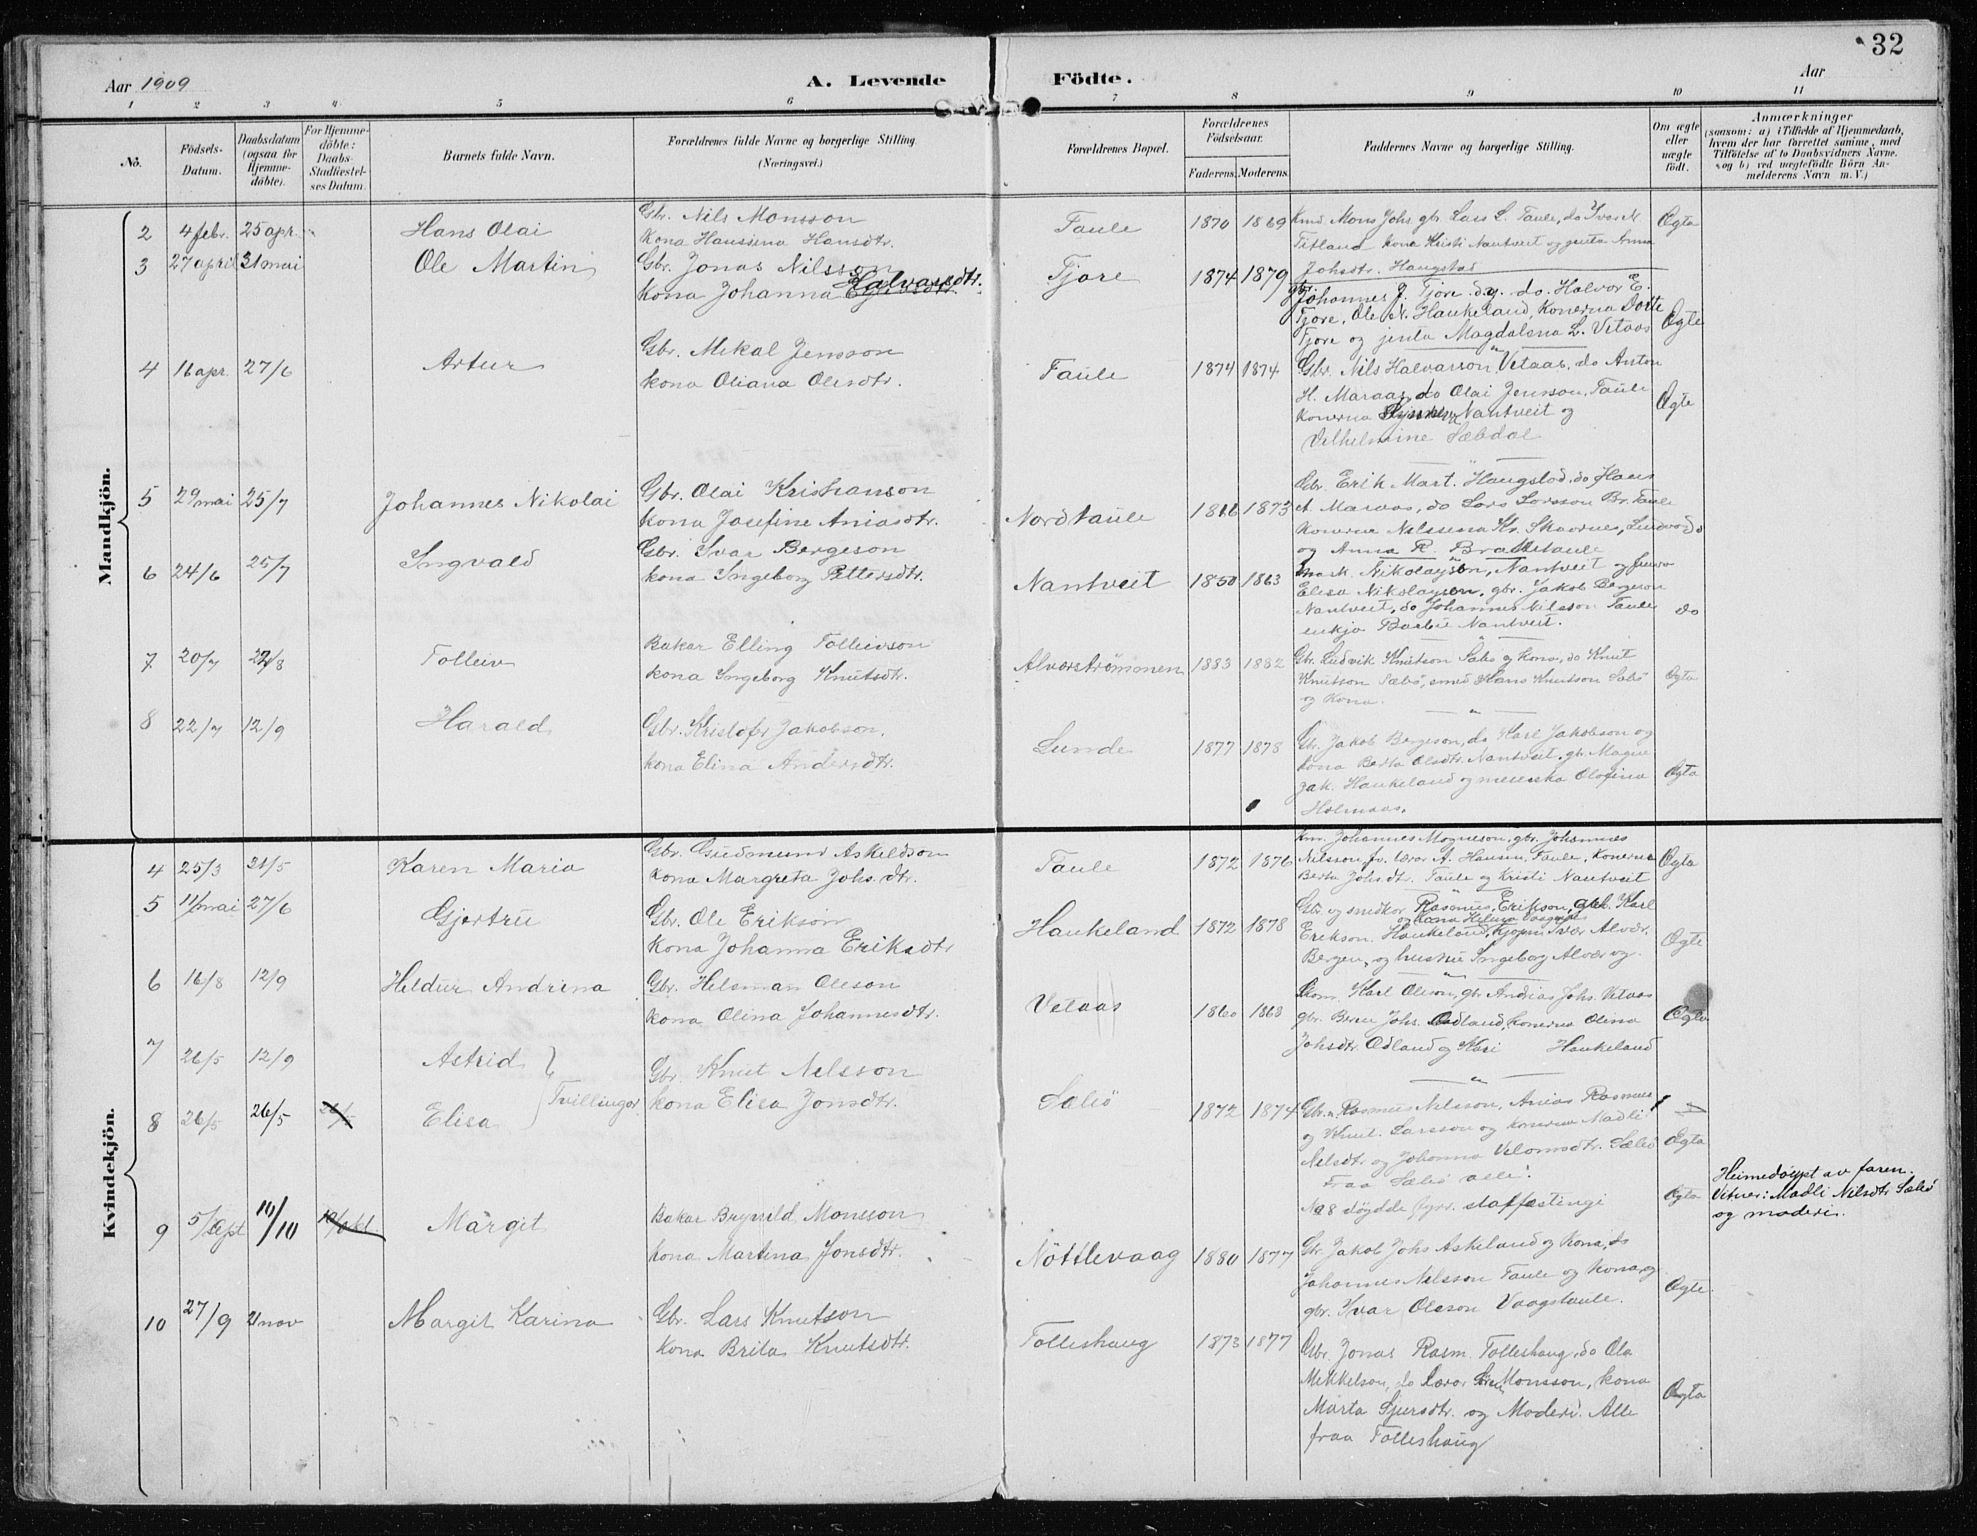 32
Aar 1909
A. Levende Födte.
Aar
1 2 3 4 5 6 7 8 9 10 11
No.
Födsels-Datum.
Daabsdatum (ogsaa for Hjemme-döbte).
For Hjemme-döbte: Daabs-Stadfæstel-ses Datum.
Barnets fulde Navn.
Forældrenes fulde Navne og borgerlige Stilling (Næringsvei.)
Forældrenes Bopæl.
Forældrenes Födselsaar.
Faderens. Moderens.
Faddernes Navne og borgerlige Stilling.
Om ægte eller uægte födt.
Anmærkninger
(saasom: a) i Tilfælde af Hjemmedaab,
hvem der har forrettet samme, med
Tilföielse af to Daabsvidners Navne.
og b) ved uægtefödte Börn An-
melderens Navn m. V.)
Mandkjön.
2 4 febr. 25 apr. Hans Olai
Gbr. Nils Monsson
Kona Hansina Hansdtr.
Taule 1870 1869
Kmd Mons Johs. gbr Lars L. Taule, do Ivar N.
Titland kona Kristi Nantveit og jenta Anna
Johsdtr. Haugstad
Ægta
3 27 april 31 mai Ole Martin
Gbr. Jonas Nilsson
Kona Johanna Halvarsdtr.
Tjore 1874 1879
gbr. Johannes J. Tjore do. Halvor E.
Tjore, Ole N. Haukeland, Konerna Dorte
Tjore og jenta Magdalena L. Vetaas
Ægte
4 16 apr. 27/6 Artur
Gbr. Mikal Jensson
kona Oliana Olesdtr.
Taule 1874 1874
Gbr. Nils Halvarson Vetaas, do Anton
H. Maraas, do Olai Jensson, Taule
Konerna Nantveit og
Vilhelmine Sæbdal
Ægte
5 29 mai 25/7 Johannes Nikolai
Gbr. Olai Kristianson
Kona Josefine Aniasdtr.
Nordtaule 1866 1873
Gbr. Erik Mart. Haugstad, do Hans
A. Maraas, do Lars Larsson Br. Taule
Konerna Nilssina Kr. Skavnes,
og Anna R Brakstaule
6 24/6 25/7 Ingvald
Gbr. Ivar Bergeson
kona Ingeborg Pettersdtr.
Nantveit 1850 1863
mask. Nikolaysen, Nantveit og fruva
Elisa Nikolaysen, gbr. Jakob Bergeson
Nantveit, do Johannes Nilsson Taule
enkja Barbu Nantveit.
do
7 20/7 22/8 Tolleiv
Bakar Elling Tolleivson
kona Ingeborg Knutsdtr.
Alverströmmen 1883 1882
Gbr. Ludvik Knutson Sæbö og kona, do Knut
Knutson Sæbö, smed Hans Knutsson Sæbö
og kona.
Ægta
8 22/7 12/9 Harald
Gbr. Kristofer Jakobson,
kona Elina Andersdtr.
Lunde 1877 1878
Gbr. Jakob Bergeson, do Karl Jakobson og
kona Berta Olsdtr. Nantveit, gbr Magne
Jak. Haukeland og meierska Olofina
Holmaas.
Ægta
Kvindekjön.
4 25/3 21/5 Karen Maria
Gbr. Gudmund Askeldson
kona Margreta Johs.dtr.
Taule 1872 1876
Km. Johannes Mogneson, gbr. Johannes
Nilsson, fv. lærar A. Hansen, Taule, Konerna
Berta Johsdt. Taule og Kristi Nantveit
Ægta
5 11 mai 27/6 Gjertru
Gbr. Ole Erikson
Kona Johanna Eriksdtr
Haukeland 1872 1878
Gbr. og smedkar Rasmus Erikson, Karl
og kona Helena
Erikson, Haukeland, kjopm Ivar Alvær.
Bergen, og husfrue Ingeborg Alvær og
Ægte
6 16/8 12/9 Heldur Andrina
Gbr. Helsman Oleson
kona Olina Johannesdtr.
Vetaas 1860 1868
Karl Oleson, gbr Andias Johs. Vetaas
gbr. Berne Johs. Odland, konerna Olina
Johsdtr. Odland og Kari Haukeland
Ægta
7 26/5 12/9 Astrid
8 26/5 26/5 Elisa
Tvillingar
Gbr. Knut Nilsson
kona Elisa Jonsdtr.
Sæbö 1872 1874
Gbr. Rasmus Nilsson, Anias Rasmus
og Knut Larsson og konerna Madli
Nilsdtr og Johanna Velomsdtr. Sæbö
Fraa Sæbö alle.
No 8 döydde fyrr stadfestingi
Ægta
Ægta
Heimedöypt av faren.
Vitner: Madli Nilsdtr Sæbö
og moderi.
9 5/sept 10/10 Margit
Bakar Brynild Monsson
kona Martina Jonsdtr.
Nöttlevaag 1880 1877
Gbr. Jakob Johs Askeland og kona, do
Johannes Nilsson Taule og kona og
gbr. Ivar Oleson Vaagstaule.
Ægte.
10 27/9 21 nov Margit Karina
Gbr. Lars Knutson
kona Brita Knutsdtr.
Tolleshaug 1873 1877
Gbr. Jonas Rasm. Tolleshaug, do Ola
Mikkelson, do Lærar Monsson, kona
Marta Sjursdtr. og Moderi. Alle
fraa Tolleshaug
Ægta